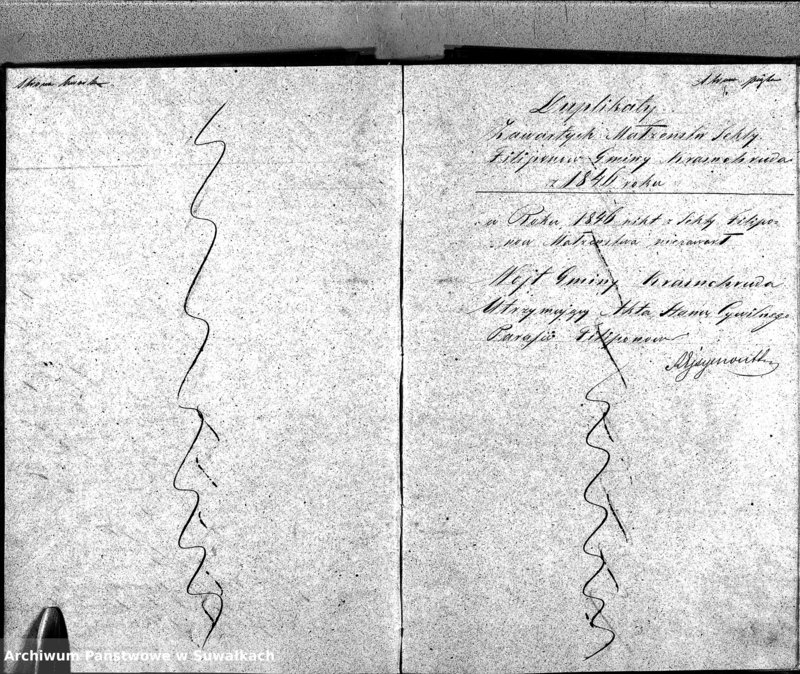 Duplikaty
Zawartych Małżenstw Sekty
Filiponow Gminy Krasnekruda
z 1846 roku
w Roku 1846 nikt z Sekty Filipo-
now Małzenstwa niezawarł
Wojt Gminy Krasnokruda
Utrzymujący Akta Stanu Cywilnego
Parafii Filiponow
Archiwum Państwowe w Suwałkach